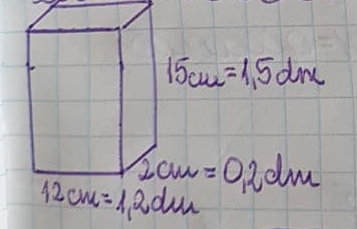 15cm=1,5dm
2cm=0,2dm
12cm=1,2dm